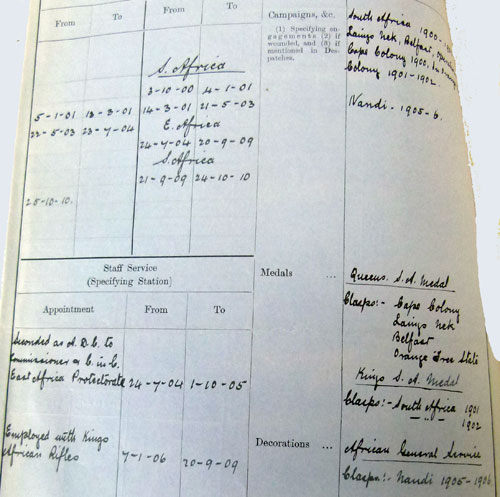 From To From To
S. Africa
3-10-00 4-1-01
5-1-01 13-3-01 14-3-01 21-5-03
E. Africa
22-5-03 23-7-04
24-7-04 20-9-09
S. Africa
21-9-09 24-10-10
25-10-10.
Campaigns, &c.
(1) Specifying en-
gagements (2) if
wounded, and (3) if
mentioned in Des-
patches.
South Africa 1900-
Laings Nek, Belfast,
Cape Colony 1900,
Colony 1901-1902.
Nandi - 1905-6.
Staff Service
(Specifying Station)
Appointment From To
Seconded as A.D.C. to
Commissioner & C. in C.
East Africa Protectorate 24-7-04 1-10-05
Employed with Kings
African Rifles 7-1-06 20-9-09
Medals ...
Queens S.A. Medal
Clasps:- Cape Colony
Laings Nek
Belfast
Orange Free State
Kings S.A. Medal
Clasps:- South Africa 1901
" " 1902
Decorations ...
African General Service
Clasps:- Nandi 1905-1906